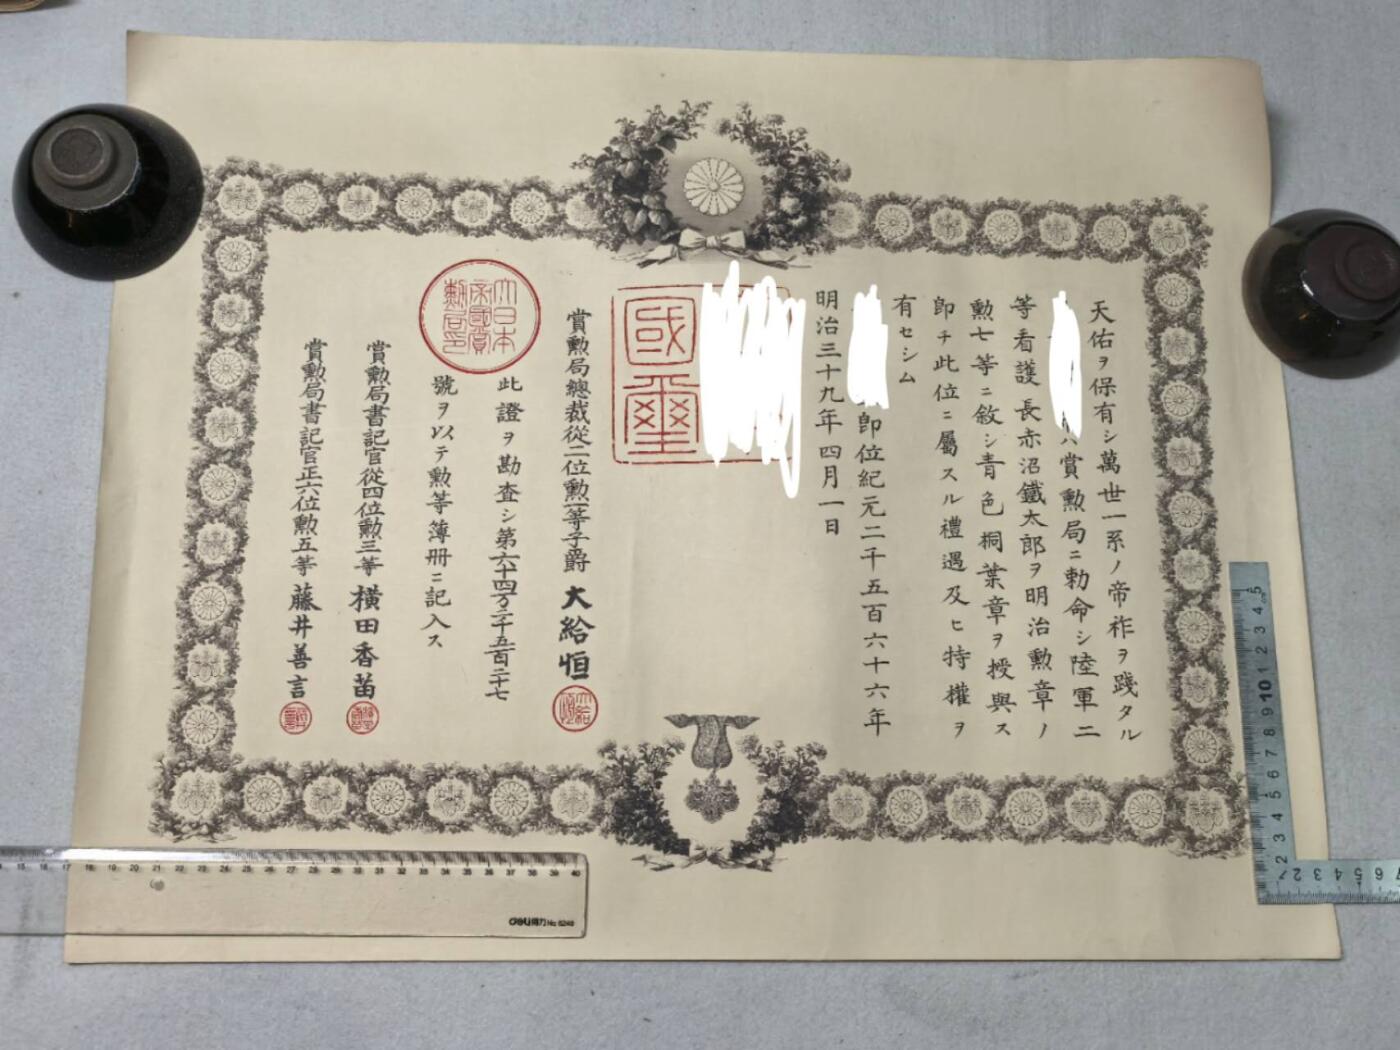 天佑ヲ保有シ萬世一系ノ帝祚ヲ踐タル
ハ賞勲局ニ勅命シ陸軍二
等看護長赤沼鐵太郎ヲ明治勲章ノ
勲七等ニ敘シ青色桐葉章ヲ授與ス
即チ此位ニ屬スル禮遇及ヒ特權ヲ
有セシム
即位紀元二千五百六十六年
明治三十九年四月一日
國璽
賞勲局總裁從二位勲一等子爵 大給恒
此證ヲ勘査シ第六十四万二千五百二十七
號ヲ以テ勲等簿册ニ記入ス
大日本帝國賞勲局印
賞勲局書記官從四位勲三等 橫田香苗
賞勲局書記官正六位勲五等 藤井善言
deli得力 No.6240